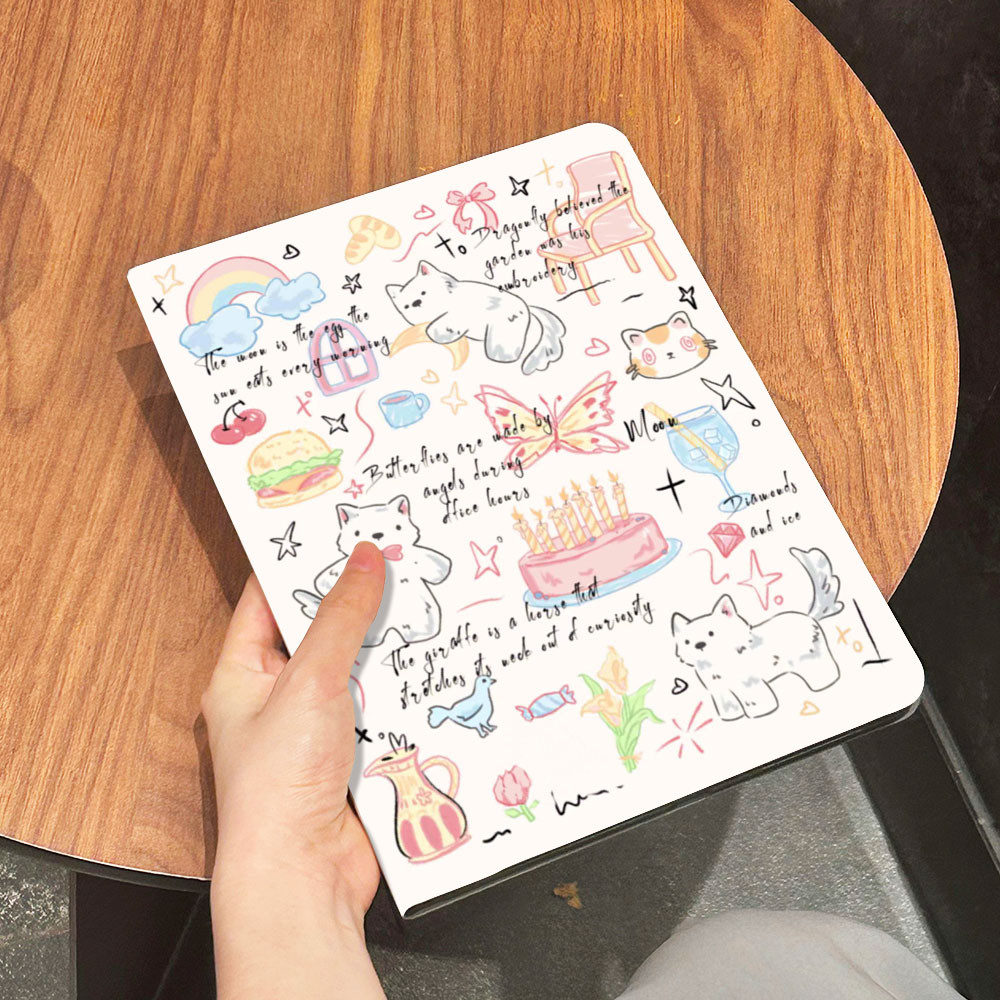 Dragonfly believed the
garden was his
embroidery
The moon is the egg the
sun eats every morning
Butterflies are made by
angels during
office hours
Moon
Diamonds
and ice
The giraffe is a horse that
stretches its neck out of curiosity